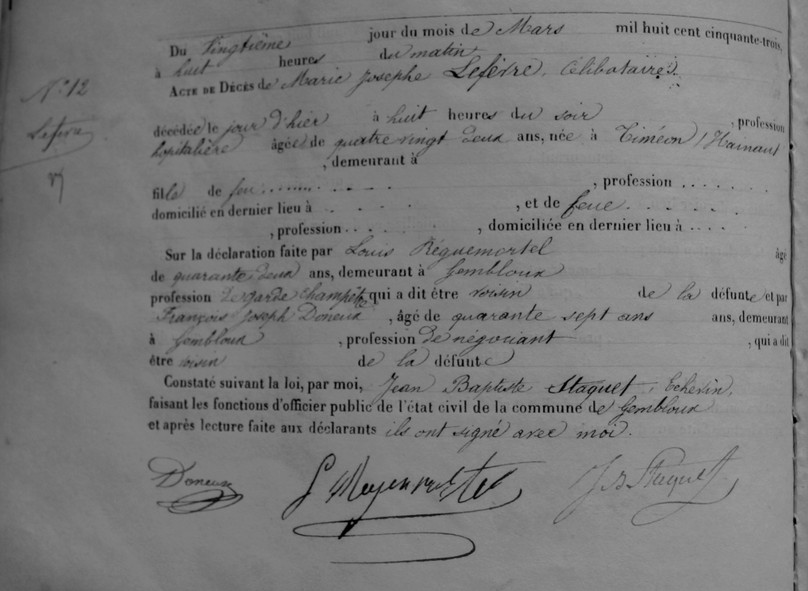 Du Vingtième jour du mois de Mars mil huit cent cinquante-trois,
à huit heures du matin
N° 12
ACTE DE DÉCÈS de Marie Josephe Lefèvre, Célibataire.
Lefèvre
décédée le jour d'hier à huit heures du soir , profession
hopitalière âgée de quatre vingt deux ans, née à Timéon /Hainaut
, demeurant à
fille de feu . . . . . . . . . . , profession . . . . . .
domicilié en dernier lieu à . . . . , et de feue . . . . .
, profession . . . . . . , domiciliée en dernier lieu à . . . .
Sur la déclaration faite par Louis Réquemortel âgé
de quarante deux ans, demeurant à Gembloux
profession de garde champêtre qui a dit être voisin de la défunte et par
François Joseph Doneux , âgé de quarante sept ans ans, demeurant
à Gembloux , profession de négociant , qui a dit
être voisin de la défunte
Constaté suivant la loi, par moi, Jean Baptiste Staquet, Echevin,
faisant les fonctions d'officier public de l'état civil de la commune de Gembloux
et après lecture faite aux déclarants ils ont signé avec moi.
Doneux J B Staquet